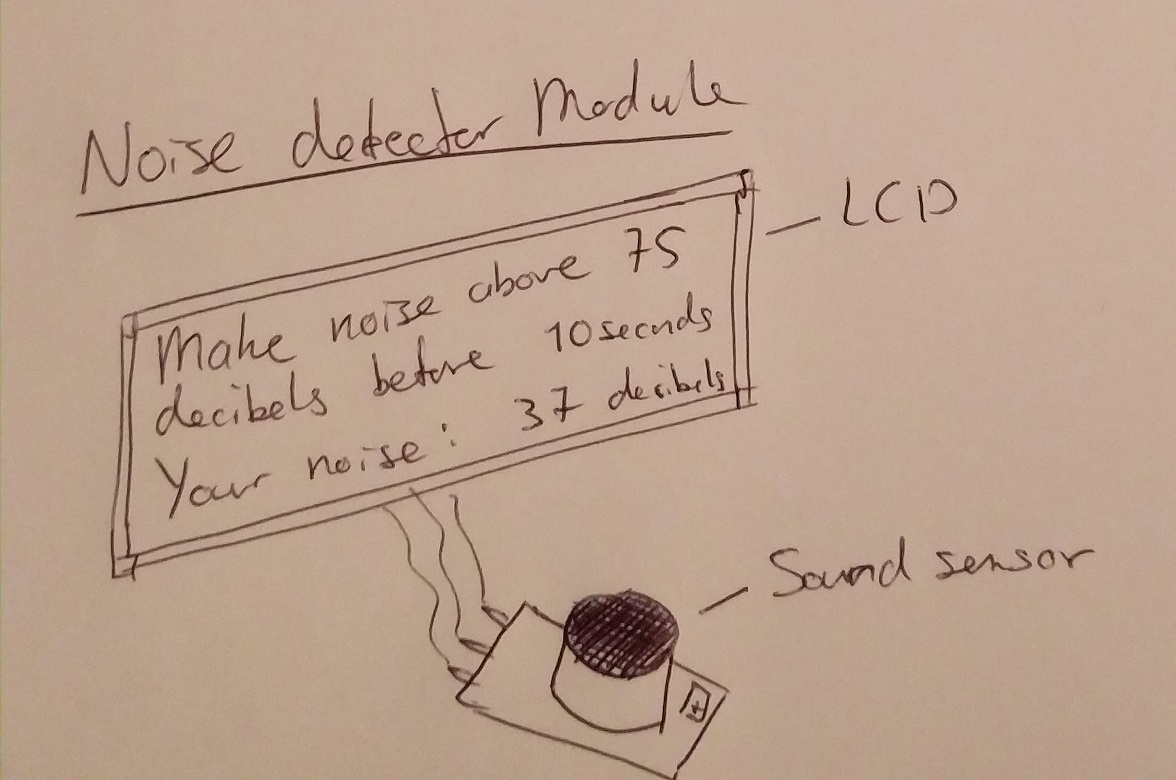 Noise detector Module
LCD
Make noise above 75
decibels before 10 seconds
Your noise: 37 decibels
Sound sensor